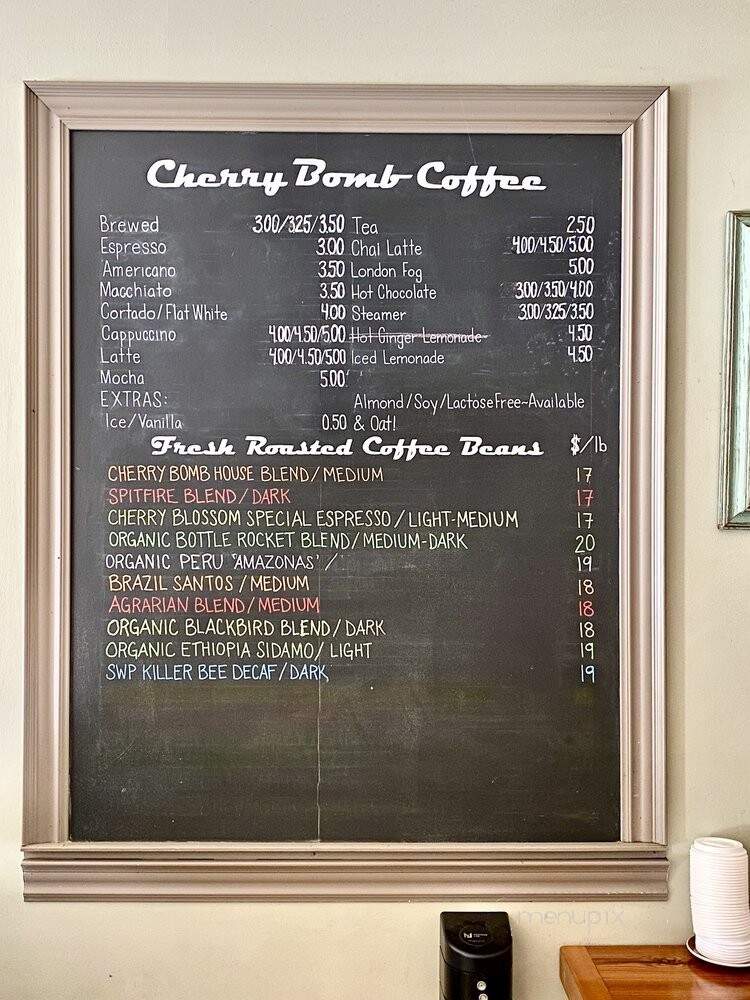 Cherry Bomb Coffee
Brewed 3.00/3.25/3.50
Espresso 3.00
Americano 3.50
Macchiato 3.50
Cortado/Flat White 4.00
Cappuccino 4.00/4.50/5.00
Latte 4.00/4.50/5.00
Mocha 5.00
EXTRAS:
Ice/Vanilla 0.50
Tea 2.50
Chai Latte 4.00/4.50/5.00
London Fog 5.00
Hot Chocolate 3.00/3.50/4.00
Steamer 3.00/3.25/3.50
Hot Ginger Lemonade 4.50
Iced Lemonade 4.50
Almond/Soy/Lactose Free~Available
& Oat!
Fresh Roasted Coffee Beans $/lb
CHERRY BOMB HOUSE BLEND/MEDIUM 17
SPITFIRE BLEND/DARK 17
CHERRY BLOSSOM SPECIAL ESPRESSO/LIGHT-MEDIUM 17
ORGANIC BOTTLE ROCKET BLEND/MEDIUM-DARK 20
ORGANIC PERU 'AMAZONAS' / 19
BRAZIL SANTOS/MEDIUM 18
AGRARIAN BLEND/MEDIUM 18
ORGANIC BLACKBIRD BLEND/DARK 18
ORGANIC ETHIOPIA SIDAMO/LIGHT 19
SWP KILLER BEE DECAF/DARK 19
menupix